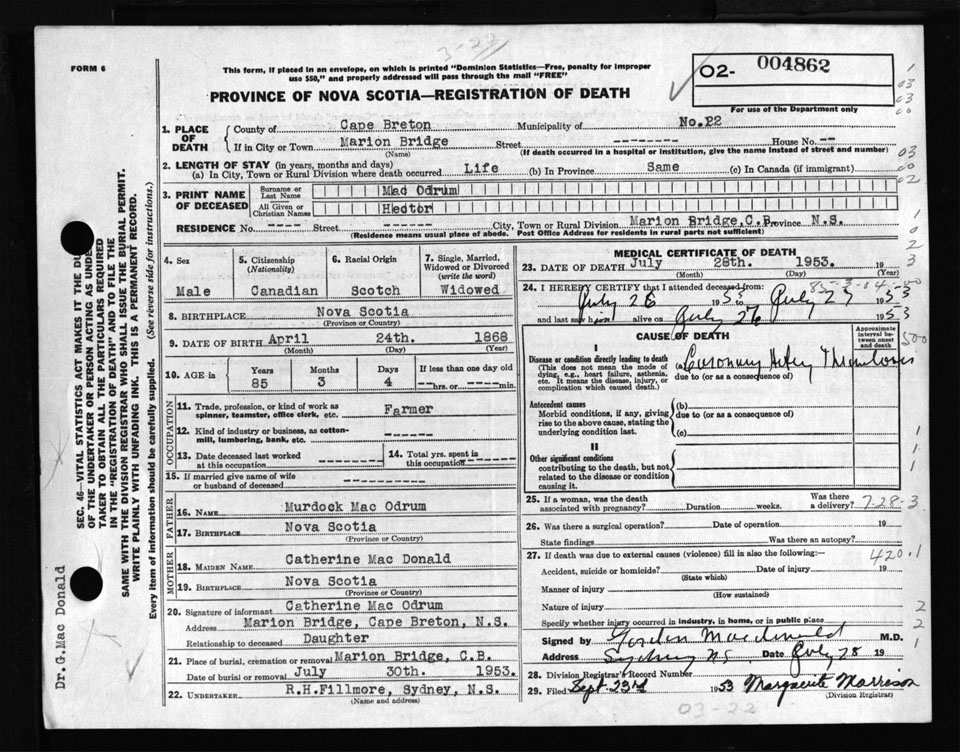 3-22
FORM 6
This form, if placed in an envelope, on which is printed "Dominion Statistics—Free, penalty for improper
use $50," and properly addressed will pass through the mail "FREE"
02- 004862
For use of the Department only
PROVINCE OF NOVA SCOTIA—REGISTRATION OF DEATH
1. PLACE OF DEATH { County of Cape Breton Municipality of No.22
If in City or Town Marion Bridge Street -------- House No. --
(Name) (If death occurred in a hospital or institution, give the name instead of street and number)
2. LENGTH OF STAY (in years, months and days)
(a) In City, Town or Rural Division where death occurred Life (b) In Province Same (c) In Canada (if immigrant)
3. PRINT NAME OF DECEASED { Surname or Last Name Mac Odrum
All Given or Christian Names Hector
RESIDENCE No. ---- Street ---- City, Town or Rural Division Marion Bridge,C.B. Province N.S.
(Residence means usual place of abode. Post Office Address for residents in rural parts not sufficient)
4. Sex
Male
5. Citizenship
(Nationality)
Canadian
6. Racial Origin
Scotch
7. Single, Married,
Widowed or Divorced
(write the word)
Widowed
8. BIRTHPLACE Nova Scotia
(Province or Country)
9. DATE OF BIRTH April 24th. 1868
(Month) (Day) (Year)
10. AGE in { Years Months Days If less than one day old
85 3 4 -- hrs. or ----- min.
OCCUPATION
11. Trade, profession, or kind of work as
spinner, teamster, office clerk, etc. Farmer
12. Kind of industry or business, as cotton-
mill, lumbering, bank, etc. ------
13. Date deceased last worked
at this occupation --------
14. Total yrs. spent in
this occupation --------
15. If married give name of wife
or husband of deceased ----------
FATHER
16. NAME Murdock Mac Odrum
17. BIRTHPLACE Nova Scotia
(Province or Country)
MOTHER
18. MAIDEN NAME Catherine Mac Donald
19. BIRTHPLACE Nova Scotia
(Province or Country)
20. Signature of informant Catherine Mac Odrum
Address Marion Bridge, Cape Breton, N.S.
Relationship to deceased Daughter
21. Place of burial, cremation or removal Marion Bridge, C.B.
Date of burial or removal July 30th. 1953.
22. UNDERTAKER R.H.Fillmore, Sydney, N.S.
(Name and address)
MEDICAL CERTIFICATE OF DEATH
23. DATE OF DEATH July 28th. 1953. 19
(Month) (Day) (Year)
24. I HEREBY CERTIFY that I attended deceased from:
July 26 1953 to July 27 1953
and last saw him alive on July 26 1953
CAUSE OF DEATH
Approximate
interval be-
tween onset
and death
I
Disease or condition directly leading to death
(This does not mean the mode of
dying, e.g., heart failure, asthenia,
etc. It means the disease, injury, or
complication which caused death.)
(a) Coronary Artery Thrombosis
due to (or as a consequence of)
Antecedent causes
Morbid conditions, if any, giving
rise to the above cause, stating the
underlying condition last.
(b)
due to (or as a consequence of)
(c)
II
Other significant conditions
contributing to the death, but not
related to the disease or condition
causing it.
25. If a woman, was the death
associated with pregnancy? Duration weeks. Was there
a delivery? 728-3
26. Was there a surgical operation? Date of operation 19
State findings Was there an autopsy?
27. If death was due to external causes (violence) fill in also the following:— 420.1
Accident, suicide or homicide? Date of injury 19
(State which)
Manner of injury
(How sustained)
Nature of injury
Specify whether injury occurred in industry, in home, or in public place
Signed by Gordon Macdonald M.D.
Address Sydney N.S. Date July 28 19
28. Division Registrar's Record Number
29. Filed Sept 23rd 1953 Marguerite Morrison
(Division Registrar)
03-22
SEC. 46—VITAL STATISTICS ACT MAKES IT THE
OF THE UNDERTAKER OR PERSON ACTING AS
TAKER TO OBTAIN ALL THE PARTICULARS REQUIRED
IN THE "REGISTRATION OF DEATH" AND TO FILE THE
SAME WITH THE DIVISION REGISTRAR WHO SHALL ISSUE THE BURIAL PERMIT.
WRITE PLAINLY WITH UNFADING INK. THIS IS A PERMANENT RECORD.
Every item of information should be carefully supplied. (See reverse side for instructions.)
Dr.G.Mac Donald